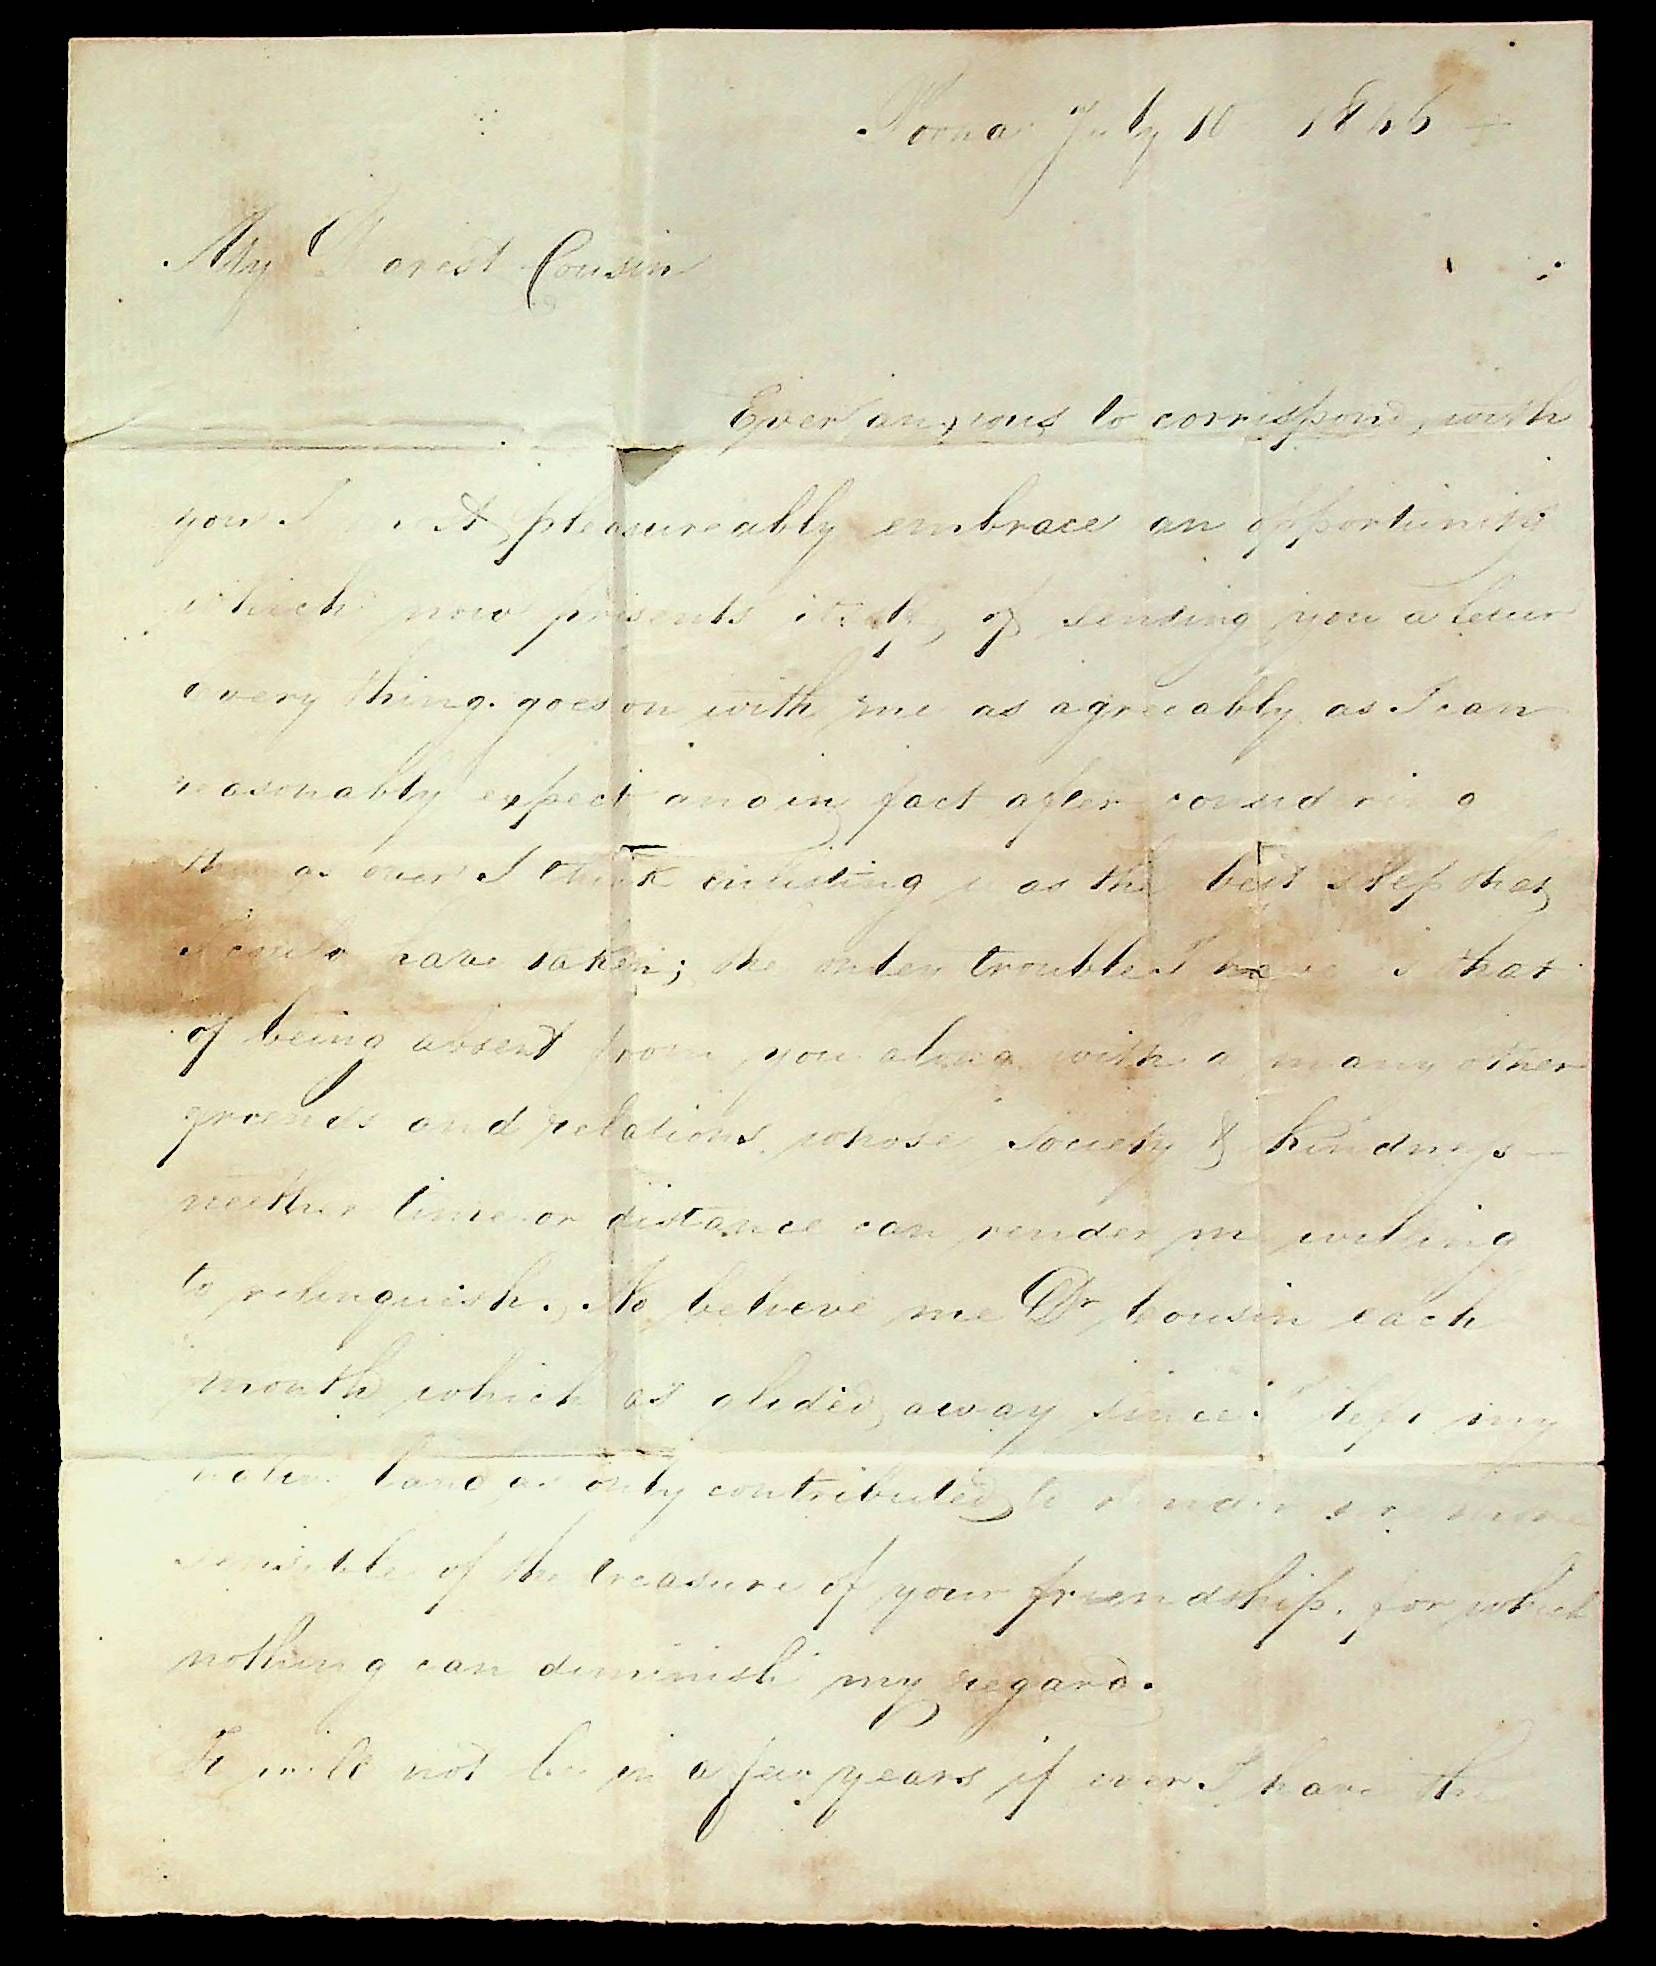 Poona July 10 1846
My Dearest Cousin
Ever anxious to correspond with
you I most pleasureably embrace an opportunity
which now presents itself of sending you a letter
every thing goes on with me as agreeably as I can
reasonably expect and in fact after considering
things over I think enlisting was the best step that
I could have taken; the onley trouble I have is that
of being absent from you along with a many other
freends and relations whose society & kindness
neether time or distance can render me willing
to relinquish. No believe me Dr Cousin each
month which as glided away since I left my
native land as only contributed to render me more
sensible of the treasure of your friendship. for which
nothing can diminish my regard.
It will not be in a few years if ever I have the